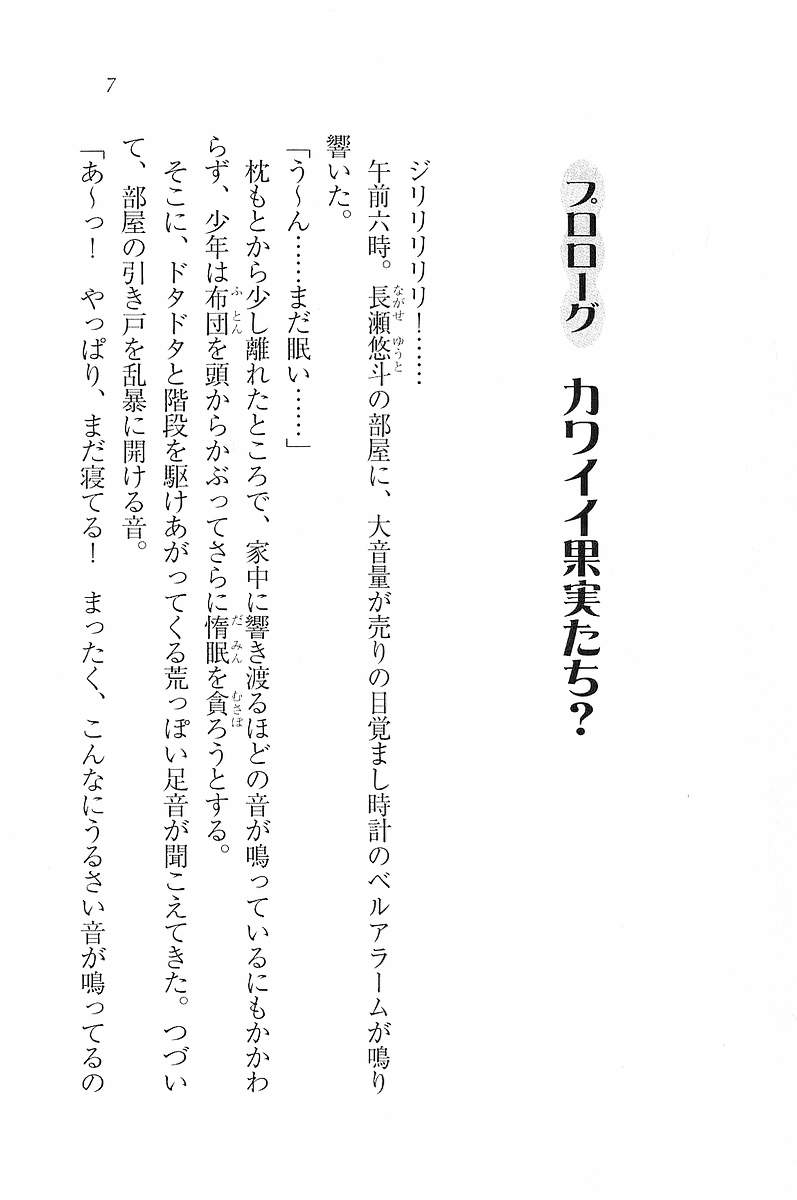 7
プロローグ　カワイイ果実たち？
ジリリリリリ！……
午前六時。長瀬悠斗の部屋に、大音量が売りの目覚まし時計のベルアラームが鳴り
響いた。
「う～ん……まだ眠い……」
枕もとから少し離れたところで、家中に響き渡るほどの音が鳴っているにもかかわ
らず、少年は布団を頭からかぶってさらに惰眠を貪ろうとする。
そこに、ドタドタと階段を駆けあがってくる荒っぽい足音が聞こえてきた。つづい
て、部屋の引き戸を乱暴に開ける音。
「あ～っ！　やっぱり、まだ寝てる！　まったく、こんなにうるさい音が鳴ってるの